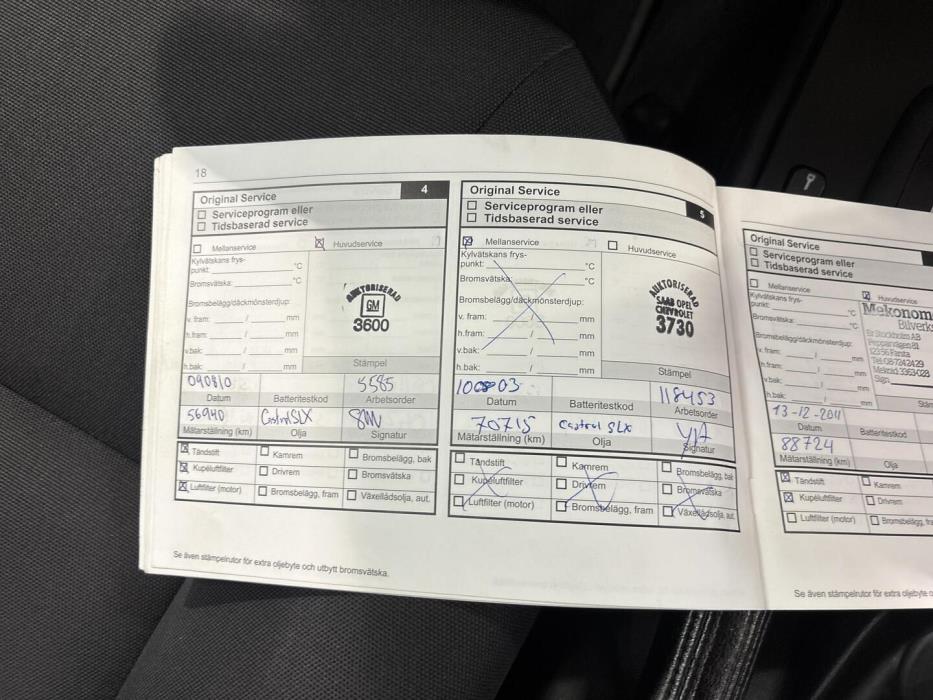 18
Original Service 4
Serviceprogram eller
Tidsbaserad service
Mellanservice Huvudservice
Kylvätskans frys-
punkt: °C
Bromsvätska: °C
Bromsbelägg/däckmönsterdjup:
v. fram: / mm
h.fram: / mm
v.bak: / mm
h.bak: / mm
AUKTORISERAD
GM
3600
Stämpel
090810 5585
Datum Batteritestkod Arbetsorder
56940 Castrol SLX
Mätarställning (km) Olja Signatur
Tändstift Kamrem Bromsbelägg, bak
Kupéluftfilter Drivrem Bromsvätska
Luftfilter (motor) Bromsbelägg, fram Växellådsolja, aut.
Se även stämpelrutor för extra oljebyte och utbytt bromsvätska.
Original Service 5
Serviceprogram eller
Tidsbaserad service
Mellanservice Huvudservice
Kylvätskans frys-
punkt: °C
Bromsvätska: °C
Bromsbelägg/däckmönsterdjup:
v. fram: / mm
h.fram: / mm
v.bak: / mm
h.bak: / mm
AUKTORISERAD
SAAB OPEL
CHEVROLET
3730
Stämpel
100803 118453
Datum Batteritestkod Arbetsorder
70715 Castrol SLX
Mätarställning (km) Olja Signatur
Tändstift Kamrem Bromsbelägg, bak
Kupéluftfilter Drivrem Bromsvätska
Luftfilter (motor) Bromsbelägg, fram Växellådsolja, aut.
Original Service
Serviceprogram eller
Tidsbaserad service
Mellanservice Huvudservice
Kylvätskans frys-
punkt: °C
Bromsvätska: °C
Bromsbelägg/däckmönsterdjup:
v. fram: / mm
h.fram: / mm
v.bak: / mm
h.bak: / mm
Mekonom
Bilverks
Stockholm AB
Pepparvägen
Farsta
Sign.
13-12-2011
Datum Batteritestkod
88724
Mätarställning (km) Olja
Tändstift Kamrem
Kupéluftfilter Drivrem
Luftfilter (motor) Bromsbelägg, fra
Se även stämpelrutor för extra oljebyte o